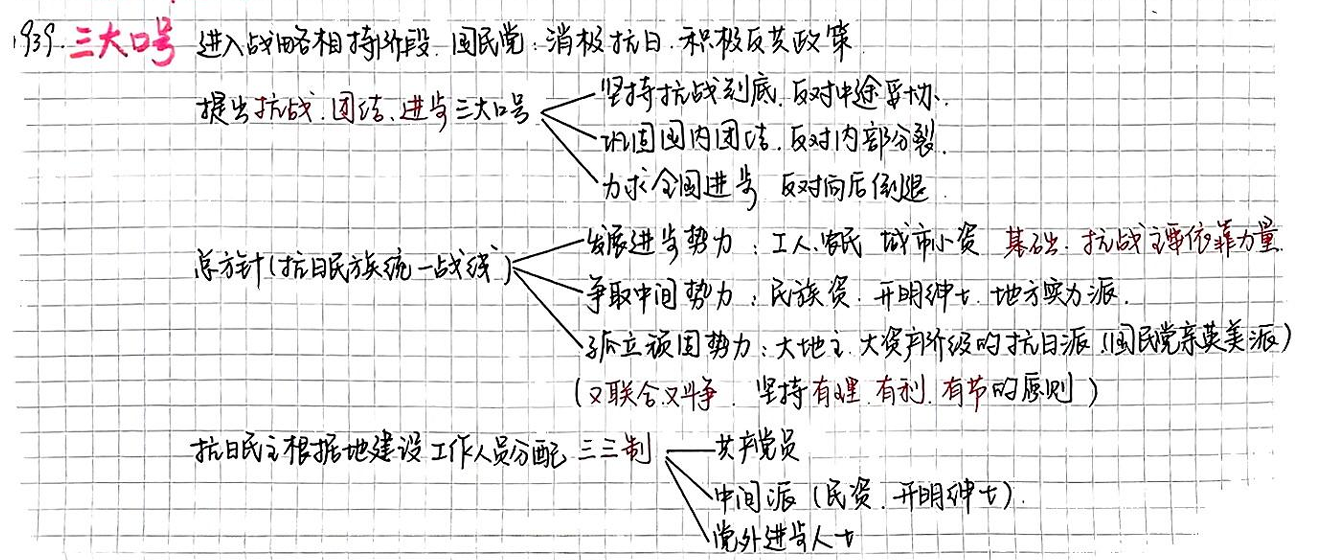 1939. 三大口号 进入战略相持阶段. 国民党: 消极抗日. 积极反共政策.
提出抗战. 团结. 进步三大口号
坚持抗战到底. 反对中途妥协.
巩固国内团结. 反对内部分裂.
力求全国进步 反对向后倒退.
总方针(抗日民族统一战线)
发展进步势力: 工人.农民 城市小资 基础. 抗战主要依靠力量.
争取中间势力: 民族资. 开明绅士. 地方实力派.
孤立顽固势力: 大地主. 大资产阶级的抗日派.(国民党亲英美派)
(又联合又斗争. 坚持有理. 有利. 有节的原则)
抗日民主根据地建设工作人员分配 三三制
共产党员
中间派 (民资. 开明绅士).
党外进步人士